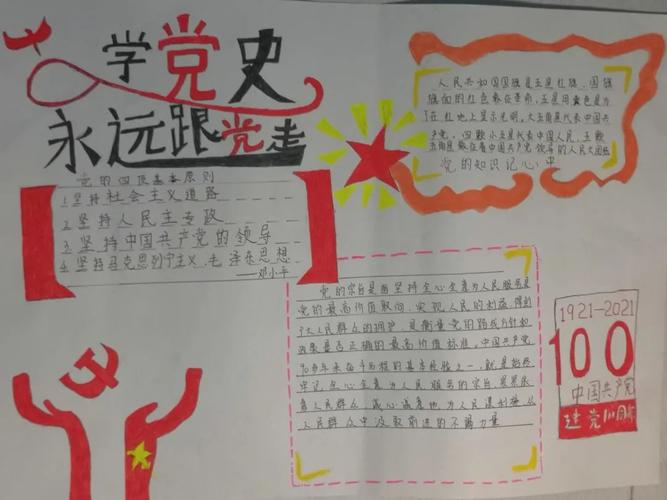 学党史
永远跟党走
党的四项基本原则
1.坚持社会主义道路
2.坚持人民主专政
3.坚持中国共产党的领导
4.坚持马克思列宁主义、毛泽东思想
——邓小平
人民共和国国旗是五星红旗,国旗
旗面的红色象征革命,五星用黄色是为
了在红地上显示光明,大五角星代表中国共
产党,四颗小五星代表中国人民,五颗
五角星象征着中国共产党领导的人民大团结
党的知识记心中
党的宗旨是由坚持全心全意为人民服务是
党的最高价值取向,实现人民的利益,得到
了大人民群众的拥护,是衡量党的路线方针和
政策是否正确的最高价值标准,中国共产党
90多年来奋斗历程的基本经验之一,就是始终
牢记全心全意为人民服务的宗旨,
人民群众,诚心诚意地为人民谋利益,从
人民群众中汲取前进的不竭力量
1921-2021
100
中国共产党
建党100周年